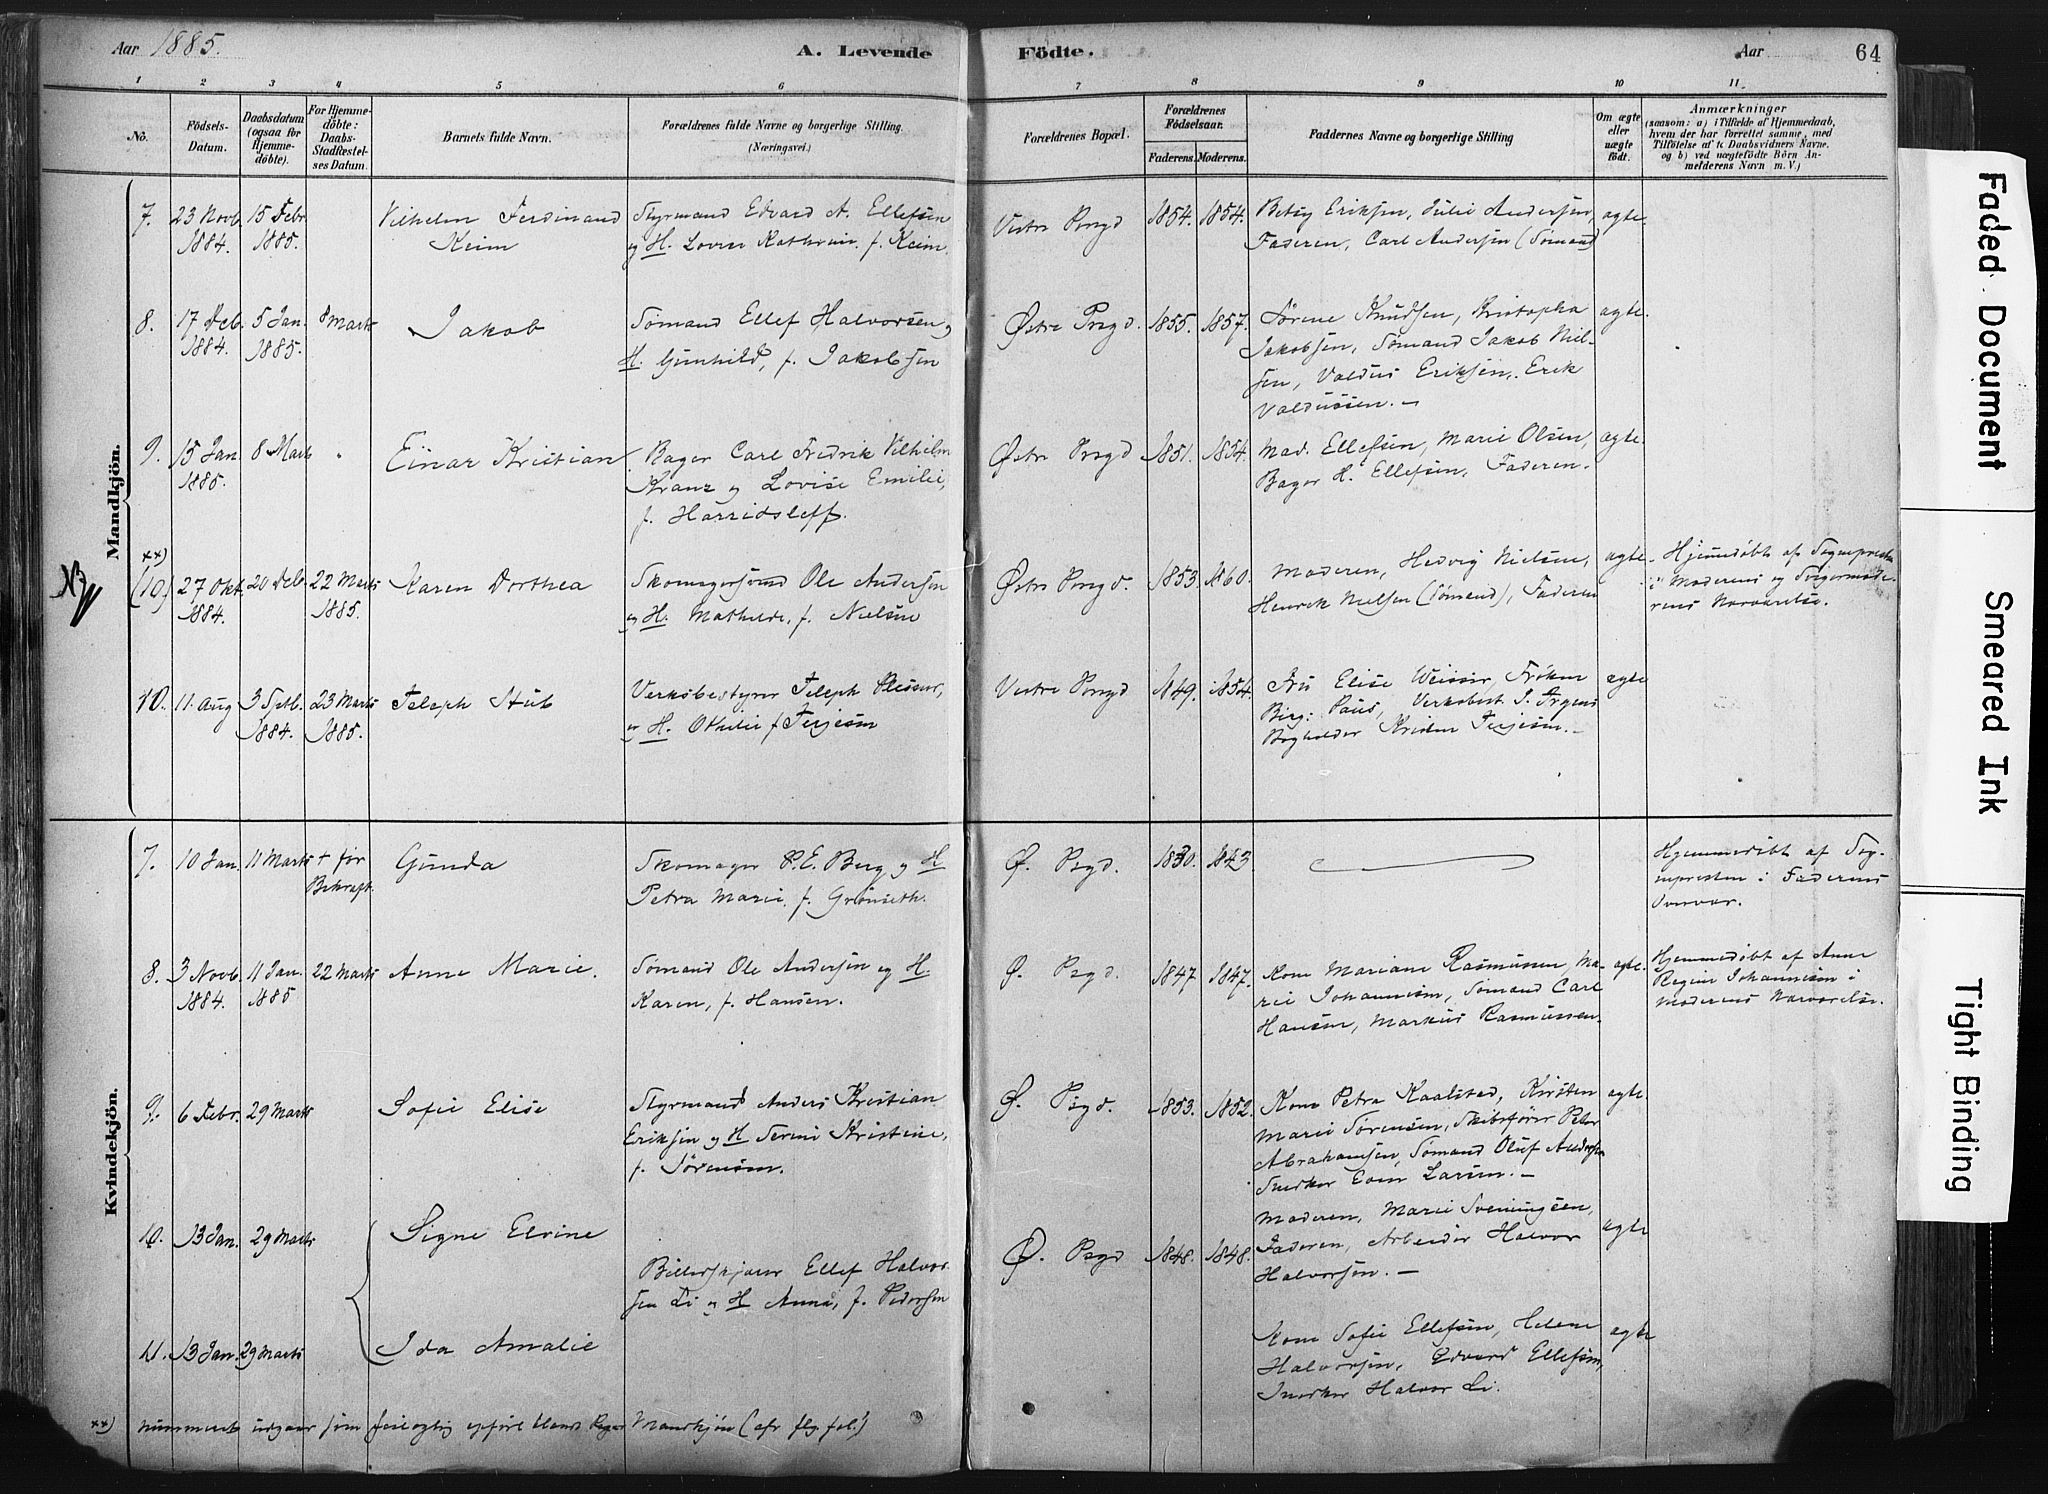 Aar 1885.
A. Levende
Födte.
Aar
64
1 2 3 4 5 6 7 8 9 10 11
No.
Födsels-Datum.
Daabsdatum (ogsaa for Hjemme-döbte).
For Hjemme-döbte: Daabs-Stadfæstel-ses Datum.
Barnets fulde Navn.
Forældrenes fulde Navne og borgerlige Stilling.
(Næringsvei.)
Forældrenes Bopæl.
Forældrenes Födselsaar.
Faderens. Moderens.
Faddernes Navne og borgerlige Stilling
Om ægte eller uægte födt.
Anmærkninger
(saasom: a) i Tilfælde af Hjemmedaab,
hvem der har forrettet samme, med
Tilföielse af to Daabsvidners Navne.
og b) ved uægtefödte Börn An-
melderens Navn m. V.)
Mandkjön.
7. 23 Novb. 15 Febr. Vilhelm Ferdinand Styrmand Edvard A. Ellefsen Vestre Porsgd 1854. 1854. Betsy Eriksen, Julie Andersen ægte.
1884. 1885. Keim og H. Lovise Kathrine f. Keim. Faderen, Carl Andersen (Sømand)
8. 17 Deb. 5 Jan. 8 Marts Jakob Sømand Ellef Halvorsen og Østre Prsgd. 1855. 1857. Sørine Knudsen, Kristopha ægte.
1884. 1885. H. Gunhild, f. Jakobsen Jakobsen, Sømand Jakob Niel-
sen, Valdus Eriksen, Erik
Valdussen. —
9. 15 Jan. 8 Marts Einar Kristian Bager Carl Fredrik Vilhelm Østre Prsgd 1851. 1854. Mad. Ellefsen, Marie Olsen, ægte.
1885. Kranz og Lovise Emilie, Bager H. Ellefsen, Faderen.
f. Harridsleff.
xx)
(10) 27 Okt. 20 Deb. 22 Marts Karen Dorthea Skomagersvend Ole Andersen Østre Porsgd. 1853. 1860. Moderen, Hedvig Nielsen, ægte. Hjemmedøbt af Sognepresten
1884. 1885. og H. Mathilde, f. Nielsen Henrik Nielsen (Sømand), Faderen i Moderens og Svigermode-
rens Nærværelse.
10. 11 Aug 3 Septb. 23 Marts Teleph Stub Verksbestyrer Teleph Vestre Porsgd 1849. 1854. Fru Elise Weisser, Frøken ægte
1884. 1885. og H. Othilie f Terjesen Birg: Paus, Verksbest J.
Bogholder Terjesen. —
Kvindekjön.
7. 10 Jan. 11 Marts + før Gunda Skomager P.E. Berg og H Ø. Psgd. 1830. 1843. Hjemmedøbt af Sog-
Bekræft. Petra Marie, f. Grønseth. nepresten i Faderens
8. 3 Novb. 11 Jan. 22 Marts Anne Marie. Sømand Ole Andersen og H. Ø. Psgd. 1847 1847. Kone Mariane Rasmussen, Ma- ægte. Hjemmedøbt af Anne
1884. 1885 Karen, f. Hansen. rie Johannesen, Sømand Carl Regine Johannesen i
Hansen, Markus Rasmussen. Moderens Nærværelse.
9. 6 Febr. 29 Marts Sofie Elise Styrmand Anders Kristian Ø. Psgd. 1853. 1852. Kone Petra Kaalstad, Kirsten ægte
Eriksen og H Serine Kristine, Marie Sørensen, Skibsfører Peter
f. Sørensen. Abrahamsen, Sømand Oluf Andersen
Snedker Even Larsen. —
10. 13 Jan. 29 Marts Signe Elvine Ø. Psgd 1848. 1848. Moderen, Marie Sveningsen, ægte
Billedskjærer Ellef Halvor- Faderen, Arbeider Halvor
sen Li og H Anna, f. Pedersen Halvorsen. —
11. 13 Jan. 29 Marts Ida Amalie Kone Sofie Ellefsen, Helene ægte
Halvorsen, Edvard Ellefsen,
Snedker Halvor Li.
xx) nummeret udgaar som feilagtig opført blandt Mandkjøn (cfr flg fol.)
Faded Document
Smeared Ink
Tight Binding